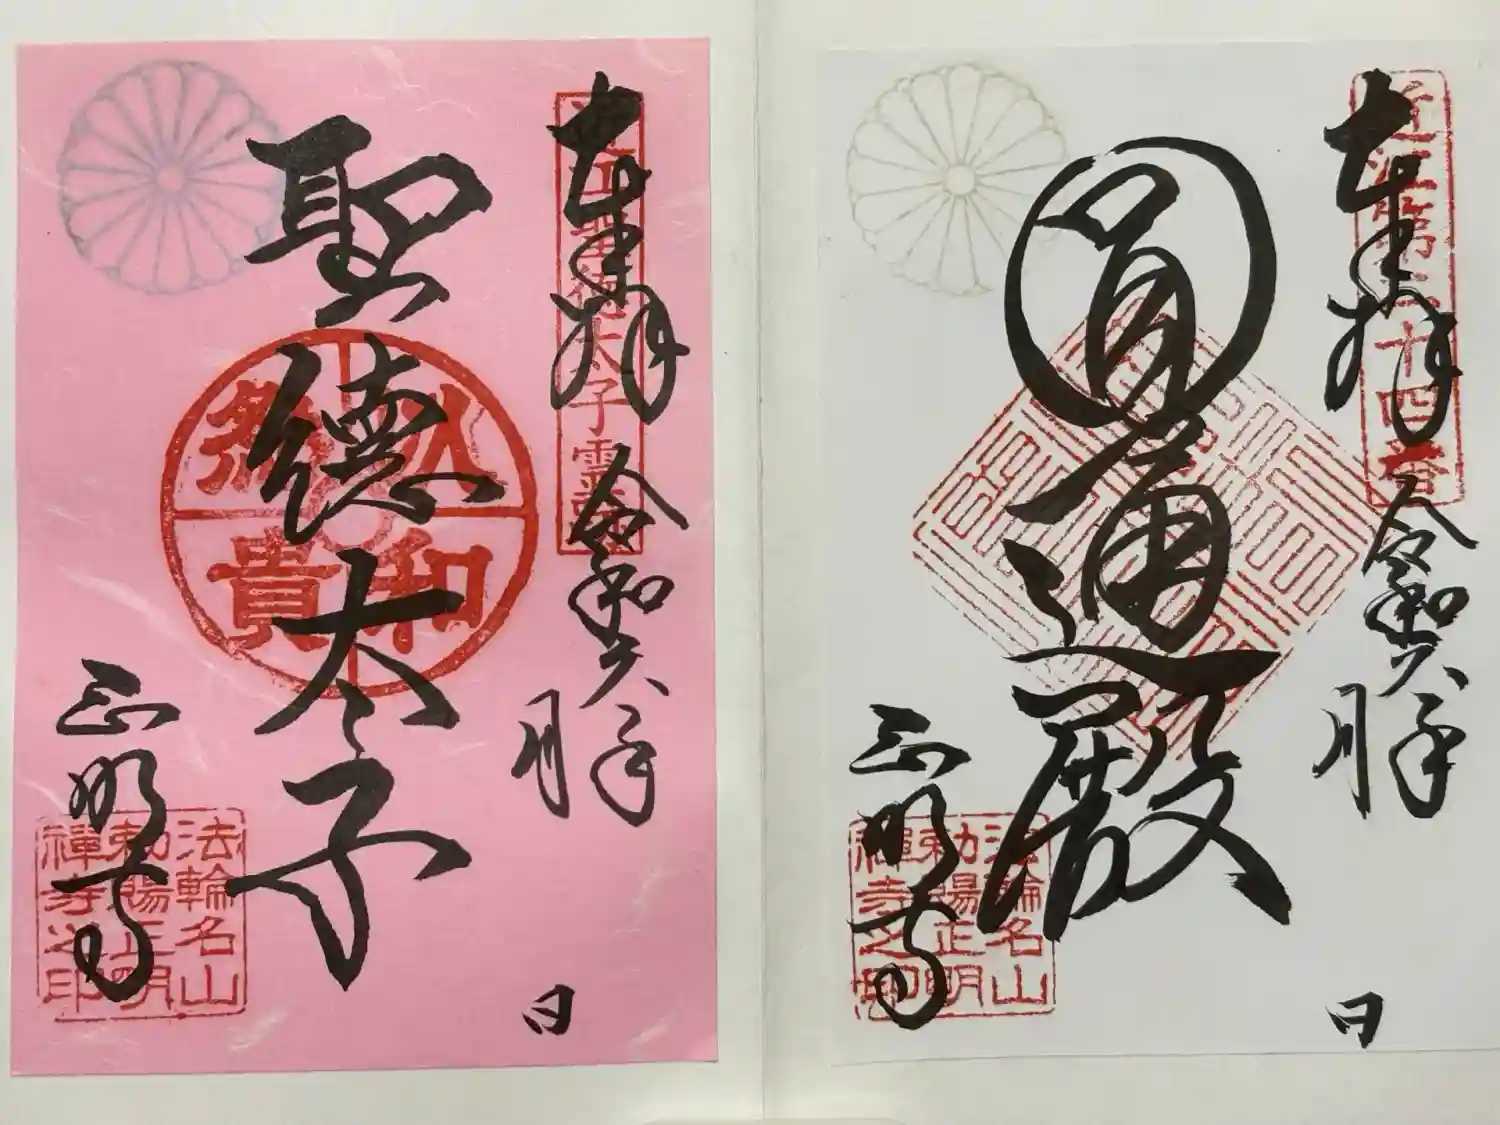 近江第二十四番
奉拝 令和六年
月 日
圓通殿
正明寺
法輪名山
勅賜正明
禪寺之印
近江聖徳太子霊蹟
奉拝 令和六年
月 日
聖徳太子
以和
為貴
正明寺
法輪名山
勅賜正明
禪寺之印